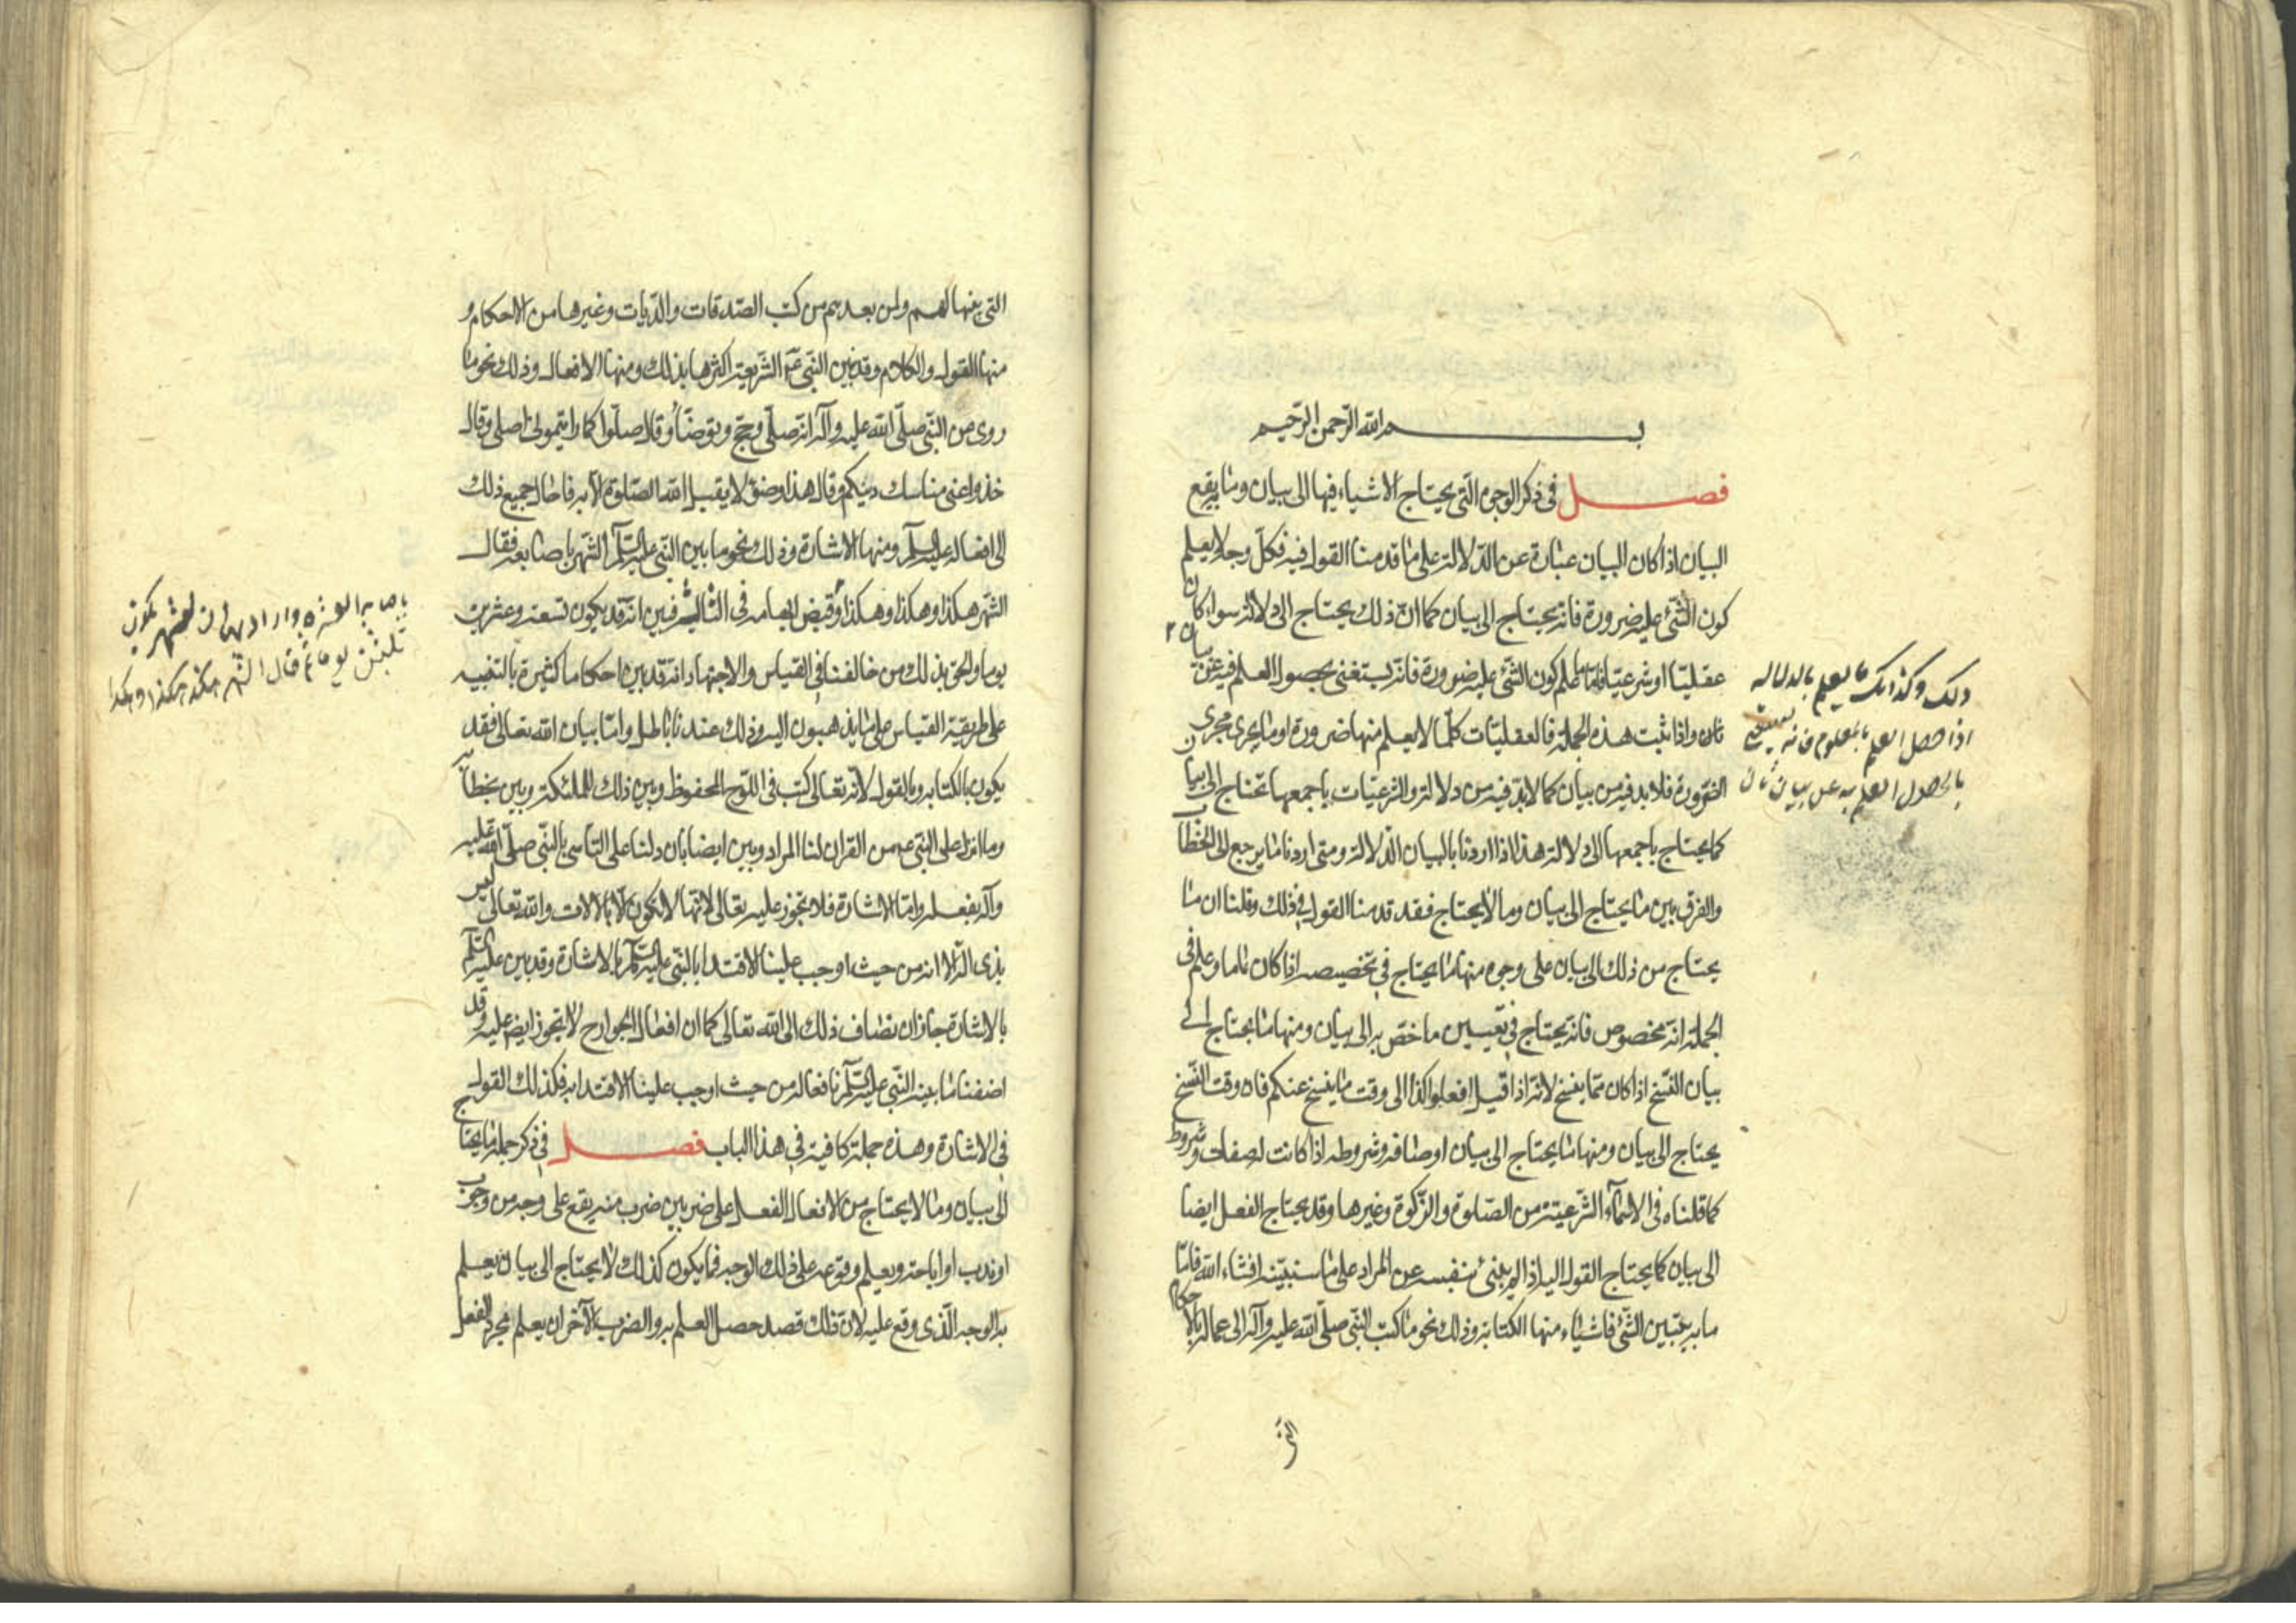 بسم الله الرحمن الرحيم
فصل في ذكر الوجوه التي يحتاج الاشياء فيها الى بيان وما به يقع
البيان اذا كان البيان عبارة عن الدلالة على ما قدمنا القول فيه فكل وجه لا يعلم
كون الشئ عليه ضرورة فانه يحتاج الى بيان كما ان ذلك يحتاج الى دلالة سواء كان
عقليا او شرعيا فاما ما علم كون الشئ عليه ضرورة فانه يستغنى بحصول العلم فيه عن بيان
ثان واذا ثبت هذه الجملة فالعقليات كلما لا يعلم منها ضرورة او ما يجرى مجرى
الضرورة فلا بد فيه من بيان كما لا بد فيه من دلالة والشرعيات باجمعها تحتاج الى بيان
كما يحتاج باجمعها الى دلالة هذا اذا اردنا بالبيان الدلالة ومتى اردنا ما يرجع الى الخطاب
والفرق بين ما يحتاج الى بيان وما لا يحتاج فقد قدمنا القول في ذلك وقلنا ان ما
يحتاج من ذلك الى بيان على وجوه منها ما يحتاج في تخصيصه اذا كان عاما وعلم في
الجملة انه مخصوص فانه يحتاج في تعيين ما خص به الى بيان ومنها ما يحتاج الى
بيان النسخ اذا كان مما ينسخ لانه اذا قيل افعلوا كذا الى وقت ما ينسخ عنكم فان وقت النسخ
يحتاج الى بيان ومنها ما يحتاج الى بيان اوصافه وشروطه اذا كانت له صفات وشروط
كما قلناه في الاسماء الشرعية من الصلوة والزكوة وغيرها وقد يحتاج الفعل ايضا
الى بيان كما يحتاج القول اليه اذا لم ينبئ بنفسه عن المراد على ما سنبينه انشاء الله فاما
ما به يتبين الشئ فاشياء منها الكتابة وذلك نحو ما كتب النبي صلى الله عليه وآله الى عماله بالاحكام
التي
ذلك وكذلك ما يعلم بالدلالة
اذا حصل العلم بالمعلوم فانه يستغنى
بحصول العلم به عن بيان ثان
التي بينها لهم ولمن بعدهم من كتب الصدقات والديات وغيرها من الاحكام و
منها القول والكلام وقد بين النبي ص الشريعة اكثرها بذلك ومنها الافعال وذلك نحو ما
روى عن النبي صلى الله عليه وآله انه صلى وحج وتوضأ وقال صلوا كما رايتموني اصلي وقال
خذوا عني مناسك دينكم وقال هذا وضوء لا يقبل الله الصلوة الا به فاحال جميع ذلك
الى افعاله عليه السلم ومنها الاشارة وذلك نحو ما بين النبي عليه السلم الشهر باصابعه فقال
الشهر هكذا وهكذا وهكذا وقبض ابهامه في الثالث فبين انه قد يكون تسعة وعشرين
يوما والحق بذلك من خالفنا في القياس والاجتهاد انه قد بين احكاما كثيرة بالتنبيه
على طريقة القياس على ما يذهبون اليه وذلك عندنا باطل واما بيان الله تعالى فقد
يكون بالكتابة وبالقول لانه تعالى كتب في اللوح المحفوظ وبين ذلك للملئكة وبين بخطابه
وما انزل على النبي ع من القران لنا المراد وبين ايضا بان دلنا على التاسي بالنبي صلى الله عليه
وآله بفعله واما الاشارة فلا تجوز عليه تعالى لانها لا تكون الا بالالات والله تعالى ليس
بذى آلة الا انه من حيث اوجب علينا الاقتدا بالنبي عليه السلم بالاشارة وقد بين عليه السلم
بالاشارة جاز ان يضاف ذلك الى الله تعالى كما ان افعال الجوارح لا تجوز ايض عليه وقد
اضفنا ما بينه النبي عليه السلم بافعاله من حيث اوجب علينا الاقتدا به فكذلك القول
في الاشارة وهذه جملة كافية في هذا الباب فصل في ذكر جملة ما يحتاج
الى بيان وما لا يحتاج من الافعال الفعل على ضربين ضرب منه يقع على وجه من وجوب
او ندب او اباحة ويعلم وقوعه على ذلك الوجه فما يكون كذلك لا يحتاج الى بيان يعلم
به الوجه الذى وقع عليه لان ذلك قصد حصل العلم به والضرب الآخر ان يعلم مجرد الفعل
باصابعه العشرة واراد بيان الشهر يكون
ثلثين يوما ثم قال الشهر هكذا هكذا وهكذا